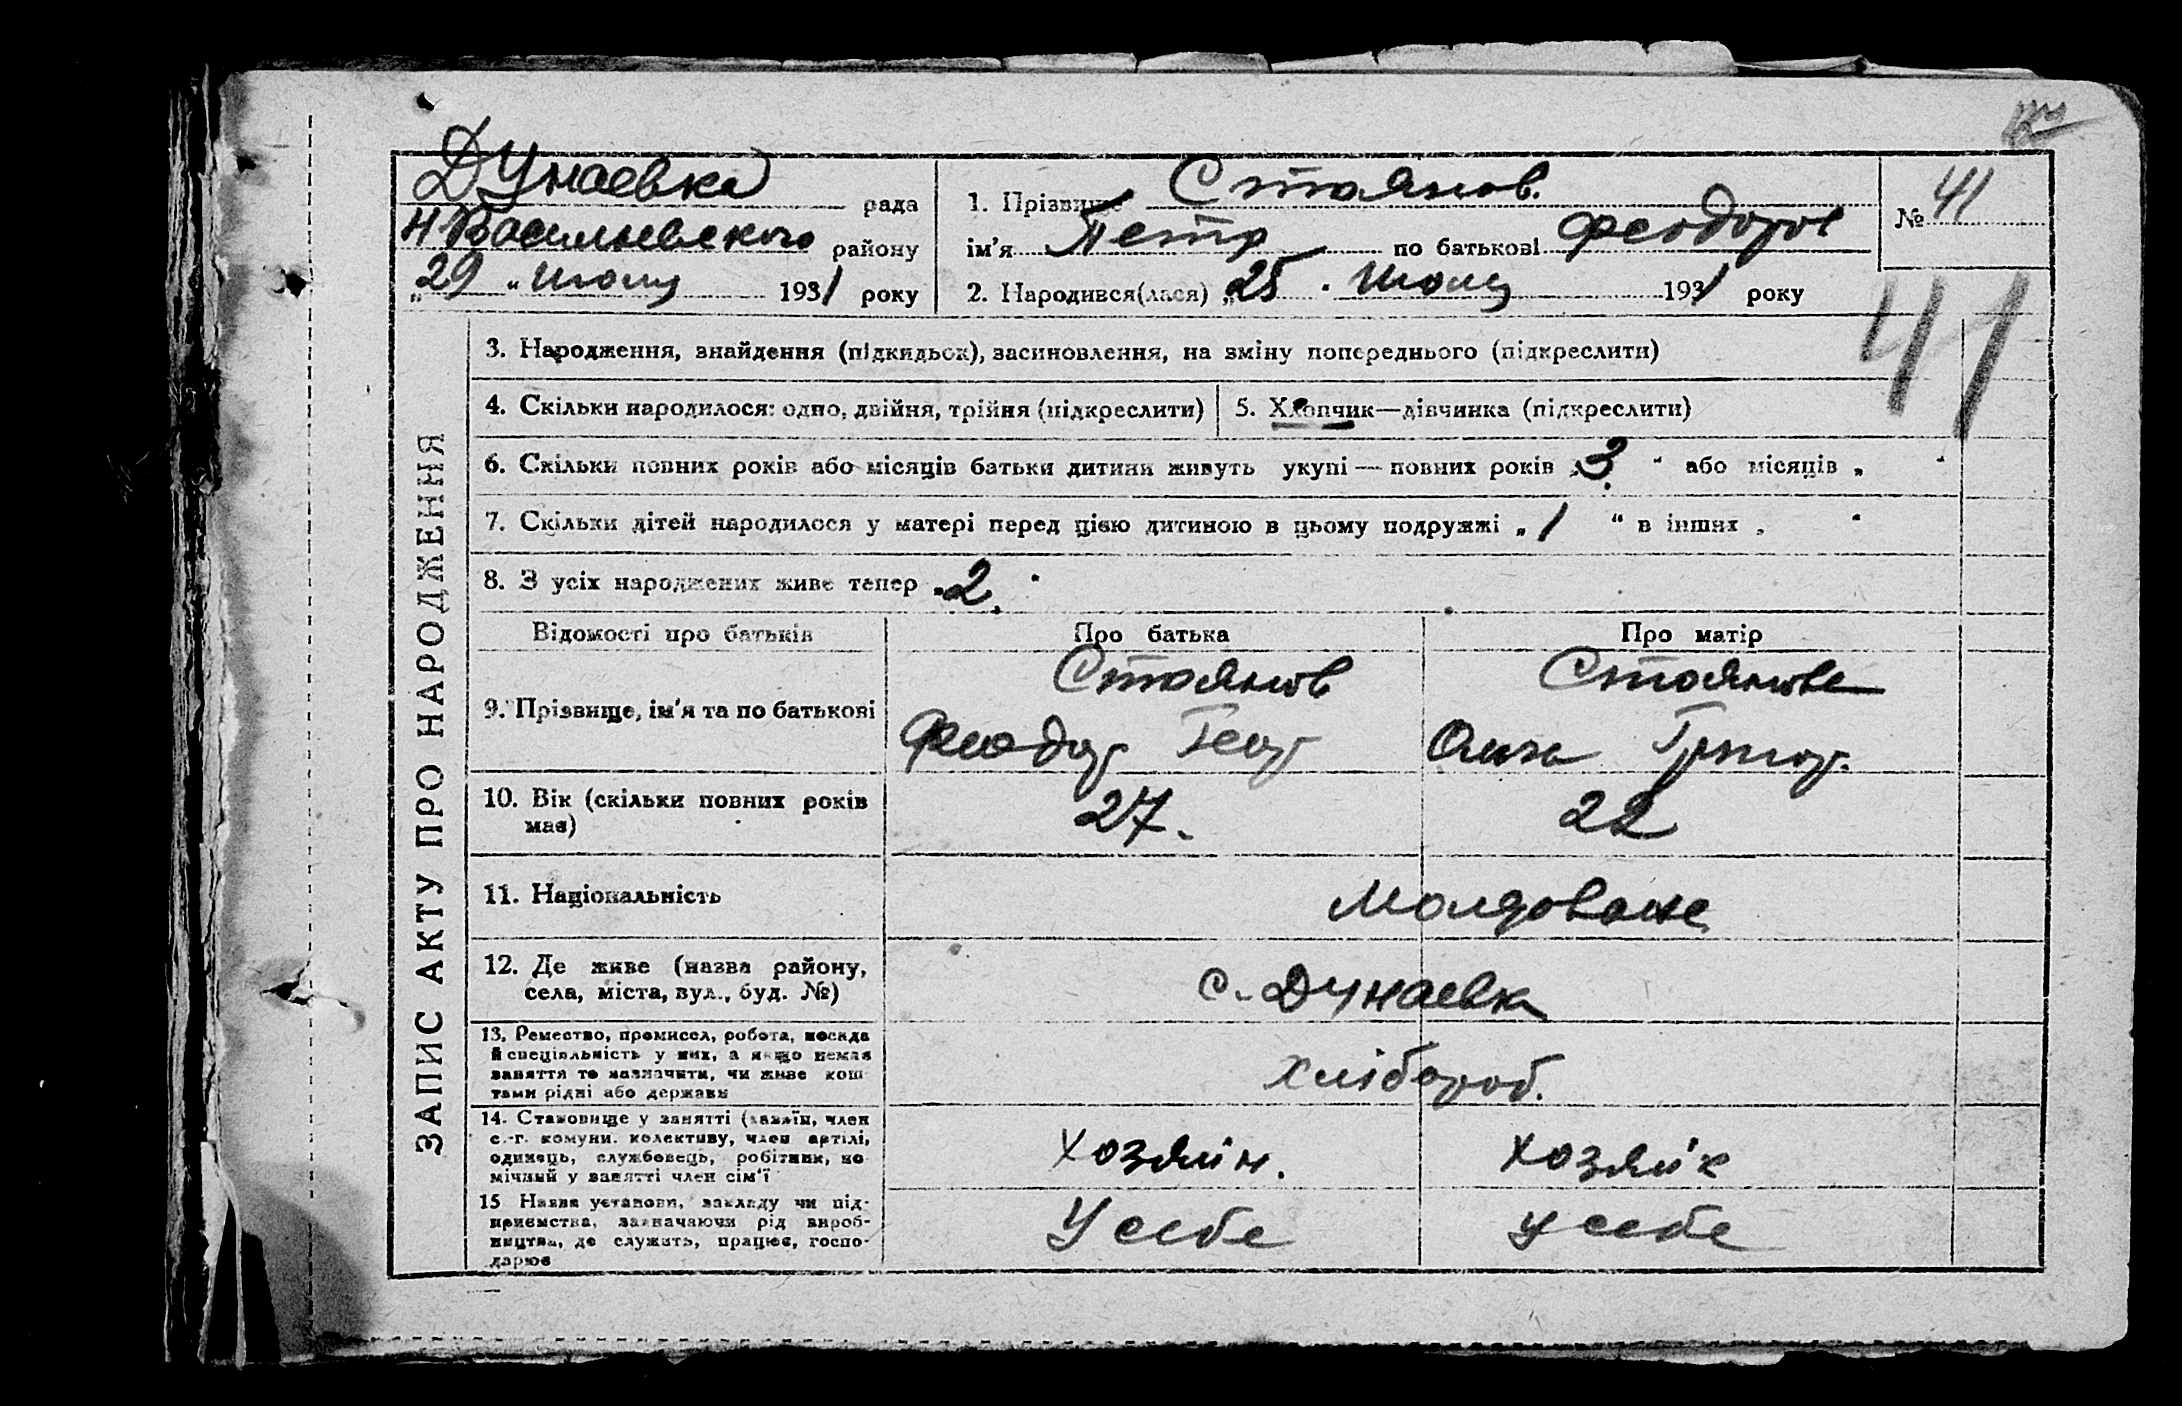 Дунаевка рада
Н Васильевского району
„29 „ Июля 1931 року
1. Прізвище Стоянов.
ім'я Петр по батькові Феодоров
2. Народився(лася) „25 . Июля 1931 року
№ 41
41
ЗАПИС АКТУ ПРО НАРОДЖЕННЯ
3. Народження, знайдення (підкидьок), засиновлення, на зміну попереднього (підкреслити)
4. Скільки народилося: одно, двійня, трійня (підкреслити)
5. Хлопчик—дівчинка (підкреслити)
6. Скільки повних років або місяців батьки дитини живуть укупі — повних років „3 “ або місяців „ “
7. Скільки дітей народилося у матері перед цією дитиною в цьому подружжі „ 1 “ в інших „ “
8. З усіх народжених живе тепер „2
Відомості про батьків Про батька Про матір
9. Прізвище, ім'я та по батькові
Стоянов
Феодор Геор
Стоянова
Ольга Григор.
10. Вік (скільки повних років має)
27. 22
11. Національність
Молдоване
12. Де живе (назва району, села, міста, вул., буд. №)
с. Дунаевка
13. Ремество, промисел, робота, посада
й спеціяльність у них, а якщо немає
заняття то назначити, чи живе кош-
тами рідні або держави
Хлібороб.
14. Становище у занятті (хазяїн, член
с.-г. комуни, колективу, член артілі,
одинець, службовець, робітник, по-
мічний у занятті член сім'ї
Хозяйн. Хозяйк
15 Назва установи, закладу чи під-
приємства, зазначаючи рід вироб-
ництва, де служить, працює, госпо-
дарює
У себе у себе